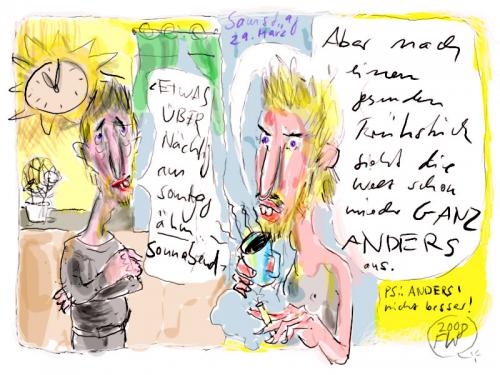 Samstag
29. März
ETWAS
ÜBER
Nächtig
nun
sonntag
ähm
Sonnabend
Aber nach
einem
gesunden
Frühstück
sieht die
Welt schon
wieder GANZ
ANDERS
aus.
PS.: ANDERS!
nicht besser!
2008
EW